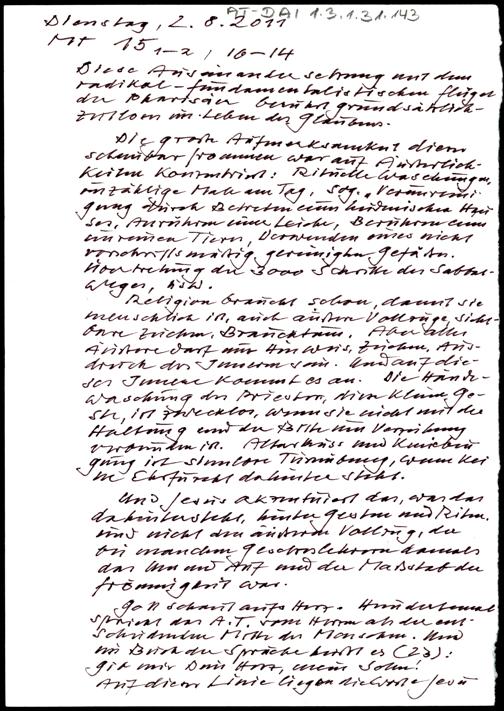 AT-DAI 1.3.1.31.143
Dienstag, 2.8.2011
Mt 15 1-2, 10-14
Diese Auseinandersetzung mit dem
radikal-fundamentalistischen Flügel
der Pharisäer berührt grundsätzlich-
zeitlos im Leben des Glaubens.
Die große Aufmerksamkeit dieser
scheinbar Frommen war auf Äußerlich-
keiten konzentriert: Rituelle Waschungen,
unzählige Male am Tag, sog. „Verunreini-
gung durch Betreten eines heidnischen Hau-
ses, Anrühren einer Leiche, Berühren eines
unreinen Tieres, Verwenden eines nicht
vorschriftsmäßig gereinigten Gefäßes.
Übertretung der 3000 Schritte des Sabbat-
weges, usw.
Religion braucht schon, damit sie
menschlich ist, auch äußere Vollzüge, sicht-
bare Zeichen, Brauchtum. Aber alles
Äußere darf nur Hinweis, Zeichen, Aus-
druck des Inneren sein. Und auf die-
ses Innere kommt es an. Die Hände-
waschung des Priesters, diese kleine Ge-
ste, ist zwecklos, wenn sie nicht mit der
Haltung und der Bitte um Vergebung
verbunden ist. Altarkuss und Kniebeu-
gung ist sinnlose Turnübung, wenn kei-
ne Ehrfurcht dahinter steht.
Und Jesus akzentuiert das, was das
dahintersteht, hinter Gesten und Riten.
und nicht den äußeren Vollzug, der
bei manchen Gesetzeslehrern damals
das Um und Auf und der Maßstab der
Frömmigkeit war.
Gott schaut aufs Herz. Hundertemal
spricht das A.T. vom Herzen als der ent-
scheidenden Mitte des Menschen. Und
im Buch der Sprüche heißt es (23):
Gib mir Dein Herz, mein Sohn!
Auf dieser Linie liegen die Worte Jesu